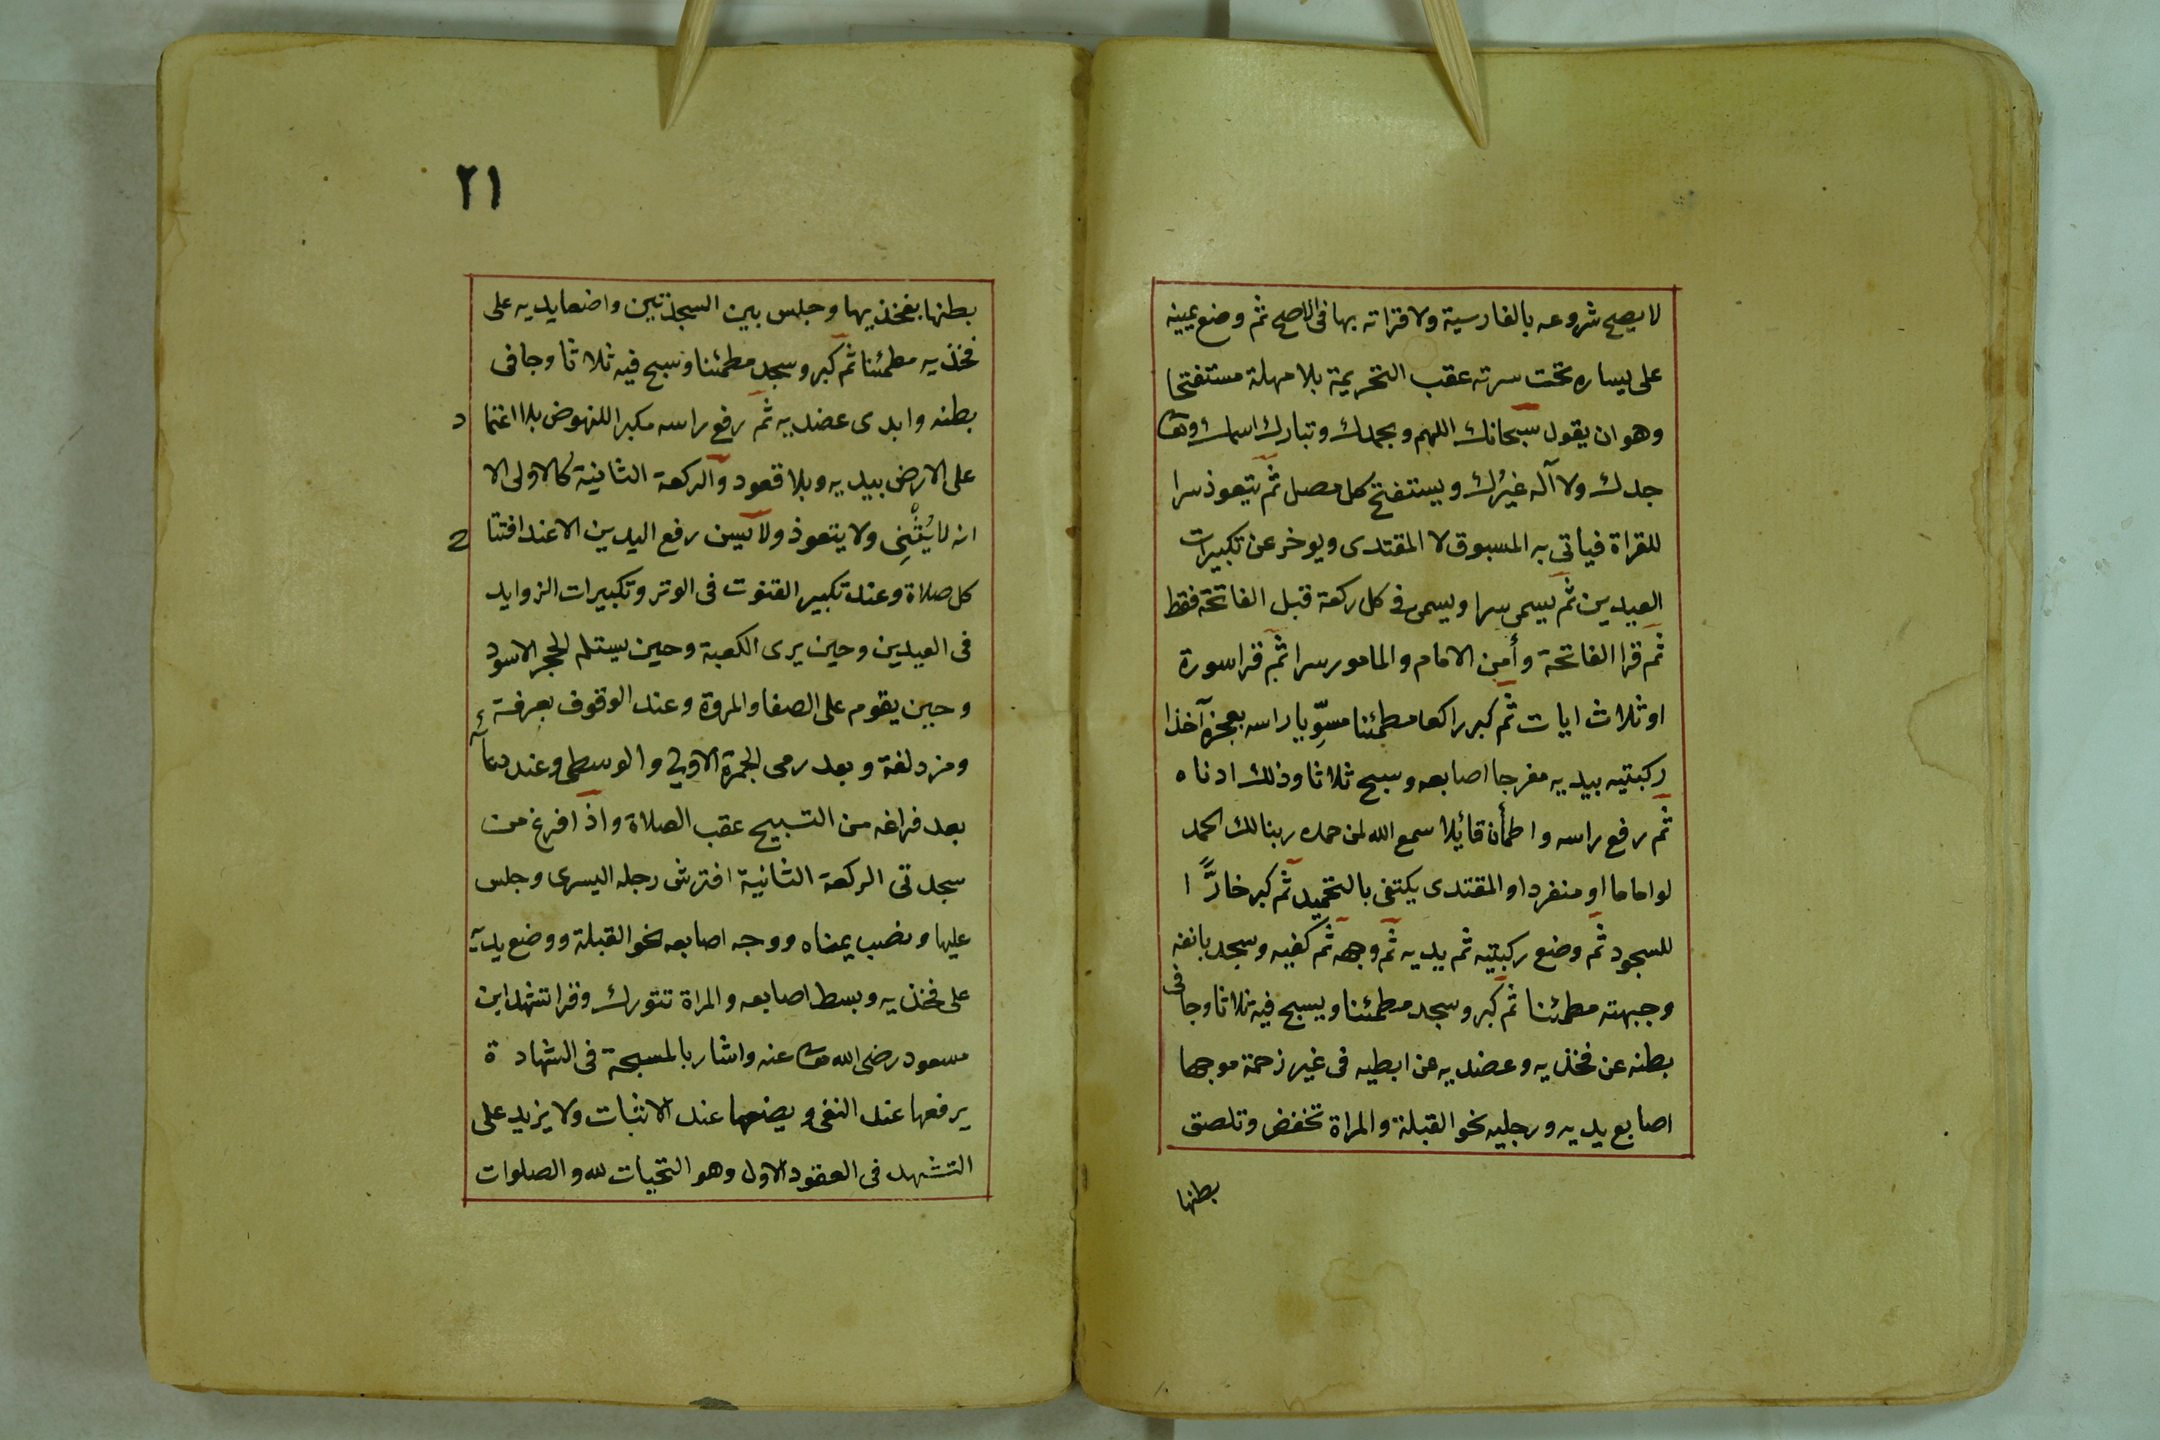 لا يصح شروعه بالفارسية ولا قراته بها فى الاصح ثم وضع يمينه
على يساره تحت سرته عقب التحريمة بلا مهلة مستفتحا
وهو ان يقول سبحانك اللهم وبحمدك وتبارك اسمك وتعا
جدك ولا آله غيرُك ويستفتح كل مصل ثم يتعوذ سرا
للقراة فياتى به المسبوق لا المقتدى ويوخر عن تكبيرات
العيدين ثم يسمى سرا ويسمى فى كل ركعة قبل الفاتحة فقط
ثم قرا الفاتحة وأمن الامام والمامور سرا ثم قرا سورة
او ثلاث ايات ثم كبر راكعا مطمئنا مسوِّيا راسه بعجزه آخذا
ركبتيه بيديه مفرجا اصابعه وسبح ثلاثا وذلك ادناه
ثم رفع راسه واطمأن قائلا سمع الله لمن حمده ربنا لك الحمد
لو اماما او منفردا والمقتدى يكتفى بالتحميد ثم كبر خارًّا
للسجود ثم وضع ركبتيه ثم يديه ثم وجهه ثم كفيه وسجد بانفه
وجبهته مطمئنا ثم كبر وسجد مطمئنا ويسبح فيه ثلاثا وجافى
بطنه عن فخذيه وعضديه عن ابطيه فى غير زحمة موجها
اصابع يديه ورجليه نحو القبلة والمراة تخفض وتلصق
بطنها
٢١
بطنها بفخذيها وجلس بين السجدتين واضعا يديه على
فخذيه مطمئنا ثم كبر وسجد مطمئنا وسبح فيه ثلاثا وجافى
بطنه وابدى عضديه ثم رفع راسه مكبرا للنهوض بلا اعتماد
على الارض بيديه وبلا قعود والركعة الثانية كالاولى الا
انه لا يُثْنِى ولا يتعوذ ولا يسن رفع اليدين الا عند افتتاح
كل صلاة وعند تكبير القنوت فى الوتر وتكبيرات الزوايد
فى العيدين وحين يرى الكعبة وحين يستلم الحجر الاسود
وحين يقوم على الصفا والمروة وعند الوقوف بعرفة
ومزدلفة وبعد رمى الجمرة الاولى والوسطى وعند دعآئه
بعد فراغه من التسبيح عقب الصلاة واذا فرغ من
سجدتى الركعة الثانية افترش رجله اليسرى وجلس
عليها ونصب يمناه ووجه اصابعه نحو القبلة ووضع يديه
على فخذيه وبسط اصابعه والمراة تتورك وقرا تشهد ابن
مسعود رضى الله تعا عنه واشار بالمسبحة فى الشهادة
يرفعها عند النفى ويضعها عند الاثبات ولا يزيد على
التشهد فى العقود الاول وهو التحيات لله والصلوات